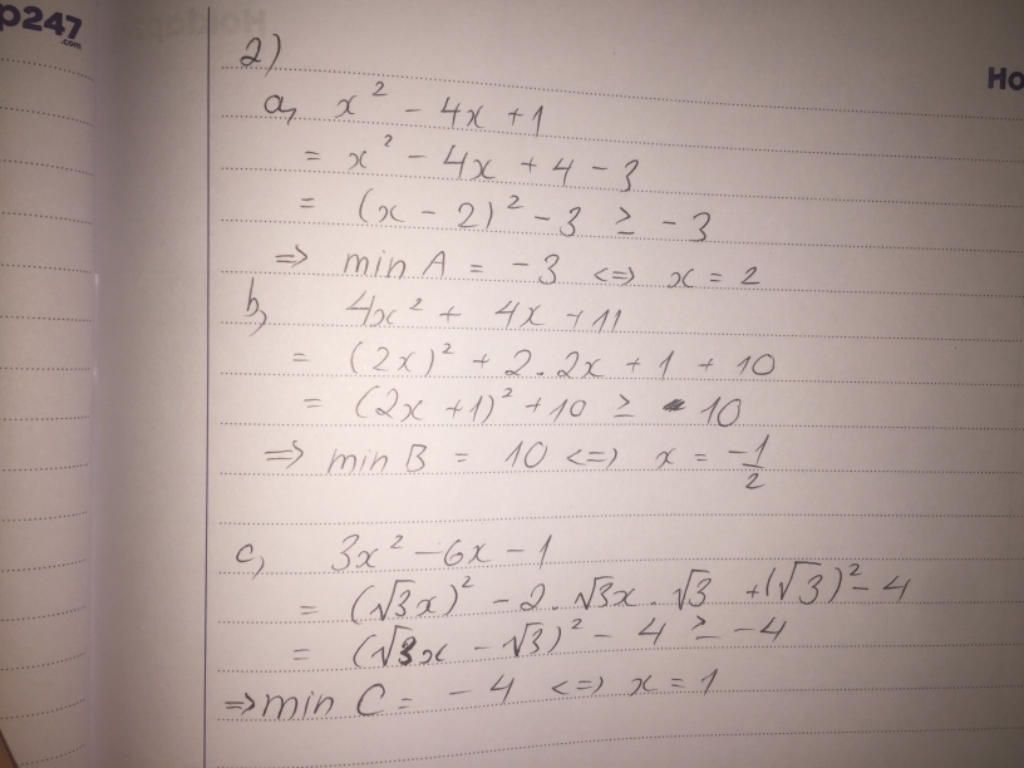 p247
.com
Ho
2)
a, x² - 4x + 1
= x² - 4x + 4 - 3
= (x - 2)² - 3 ≥ - 3
=> min A = - 3 <=> x = 2
b, 4x² + 4x + 11
= (2x)² + 2. 2x + 1 + 10
= (2x + 1)² + 10 ≥ 10
=> min B = 10 <=> x = -1/2
c, 3x² - 6x - 1
= (√3x)² - 2. √3x. √3 + (√3)² - 4
= (√3x - √3)² - 4 ≥ - 4
=> min C = - 4 <=> x = 1